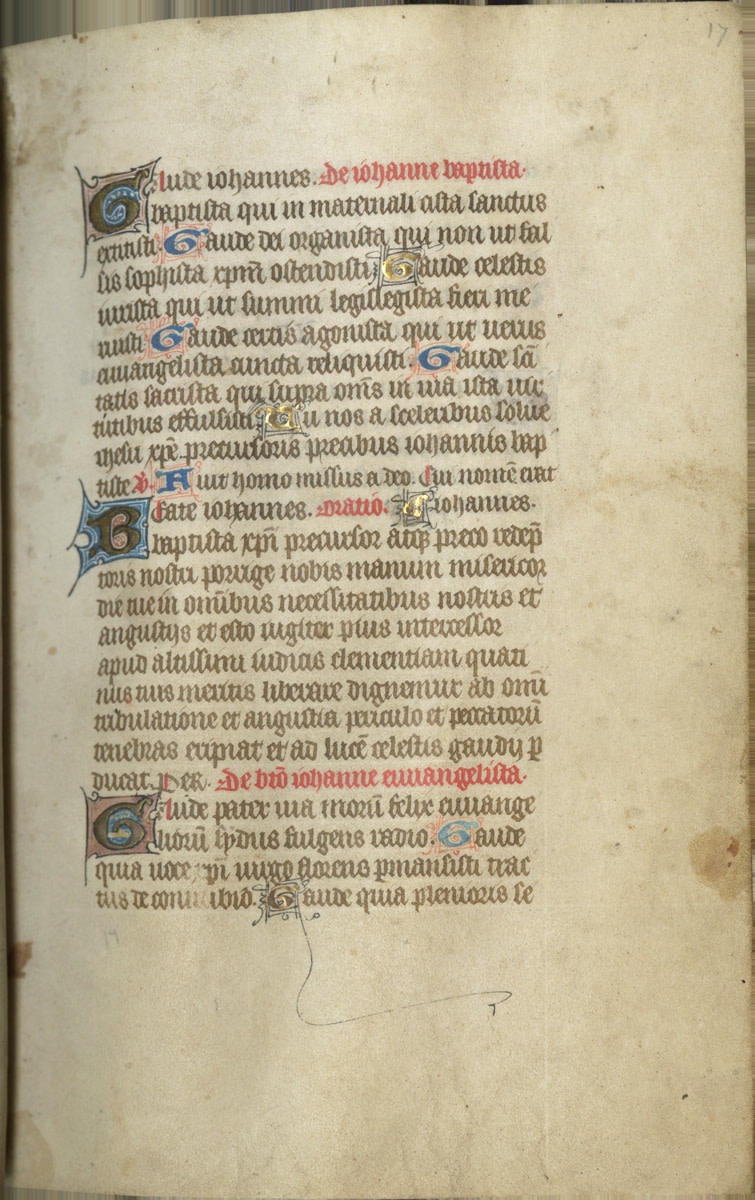 17
Gaude iohannes. De iohanne baptista.
baptista qui in maternali cista sanctus
extitisti. Gaude dei organista qui non ut fal
sis sophista xpm̄ ostendisti. Gaude celestis
iurista qui ut summi legislegista fieri me
ruisti Gaude certis agonista qui ut uerus
euuangelista cuncta reliquisti. Gaude sc̄i
tatis sacrista qui supra om̄s in uia ista uir
tutibus effulsisti. Tu nos a sceleribus solue
ihesu xp̄e precursoris precibus iohannis bap
tiste. V. Fuit homo missus a deo. Cui nomē erat
Beate iohannes. Oratio. iohannes.
baptista xp̄i precursor atq; preco redēp
toris nostri porrige nobis manum misericor
die tue in omībus necessitatibus nostris et
angustijs et esto iugiter pius intercessor
apud altissimi iudicis clementiam quati
nus tuis meritis liberare dignemur ab omī
tribulatione et angustia periculo et peccatorū
tenebras eripiat et ad lucē celestis gaudij p̄
ducat. Per. De btō iohanne euuangelista.
Gaude pater uia morū felix euuange
liorū sydus fulgens radio. Gaude
quia uoce xp̄i uirgo florens p̄mansisti trac
tus de connubio. Gaude quia plenioris se
17